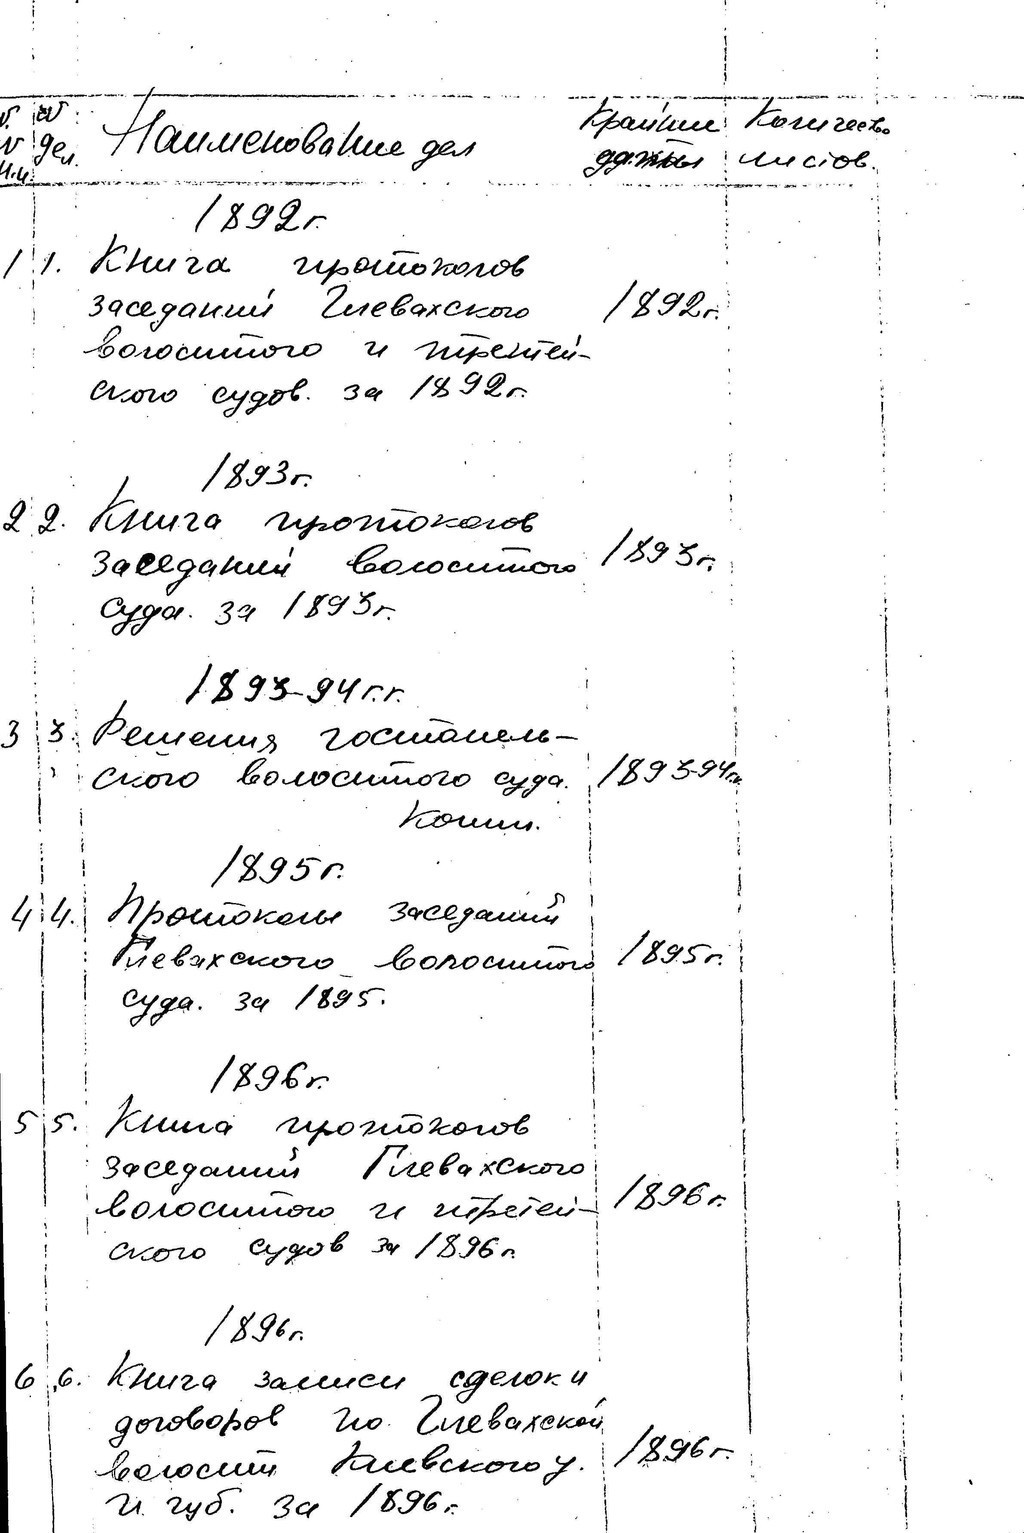 № дел. Наименование дел Крайние Количество
даты листов.
1892г.
1 1. Книга протоколов
заседаний Глевахского 1892г.
волостного и третей-
ского судов. за 1892г.
1893г.
2 2. Книга протоколов
заседаний волостного 1893г.
суда. за 1893г.
1893-94г.г.
3 3. Решения
ского волостного суда. 1893-94гг.
Копии.
1895г.
4 4. Протоколы заседаний
Глевахского волостного 1895г.
суда. за 1895.
1896г.
5 5. Книга протоколов
заседаний Глевахского
волостного и третей- 1896г.
ского судов за 1896г.
1896г.
6 6. Книга записи сделок и
договоров по Глевахской
волости Киевского у. 1896г.
и губ. за 1896г.